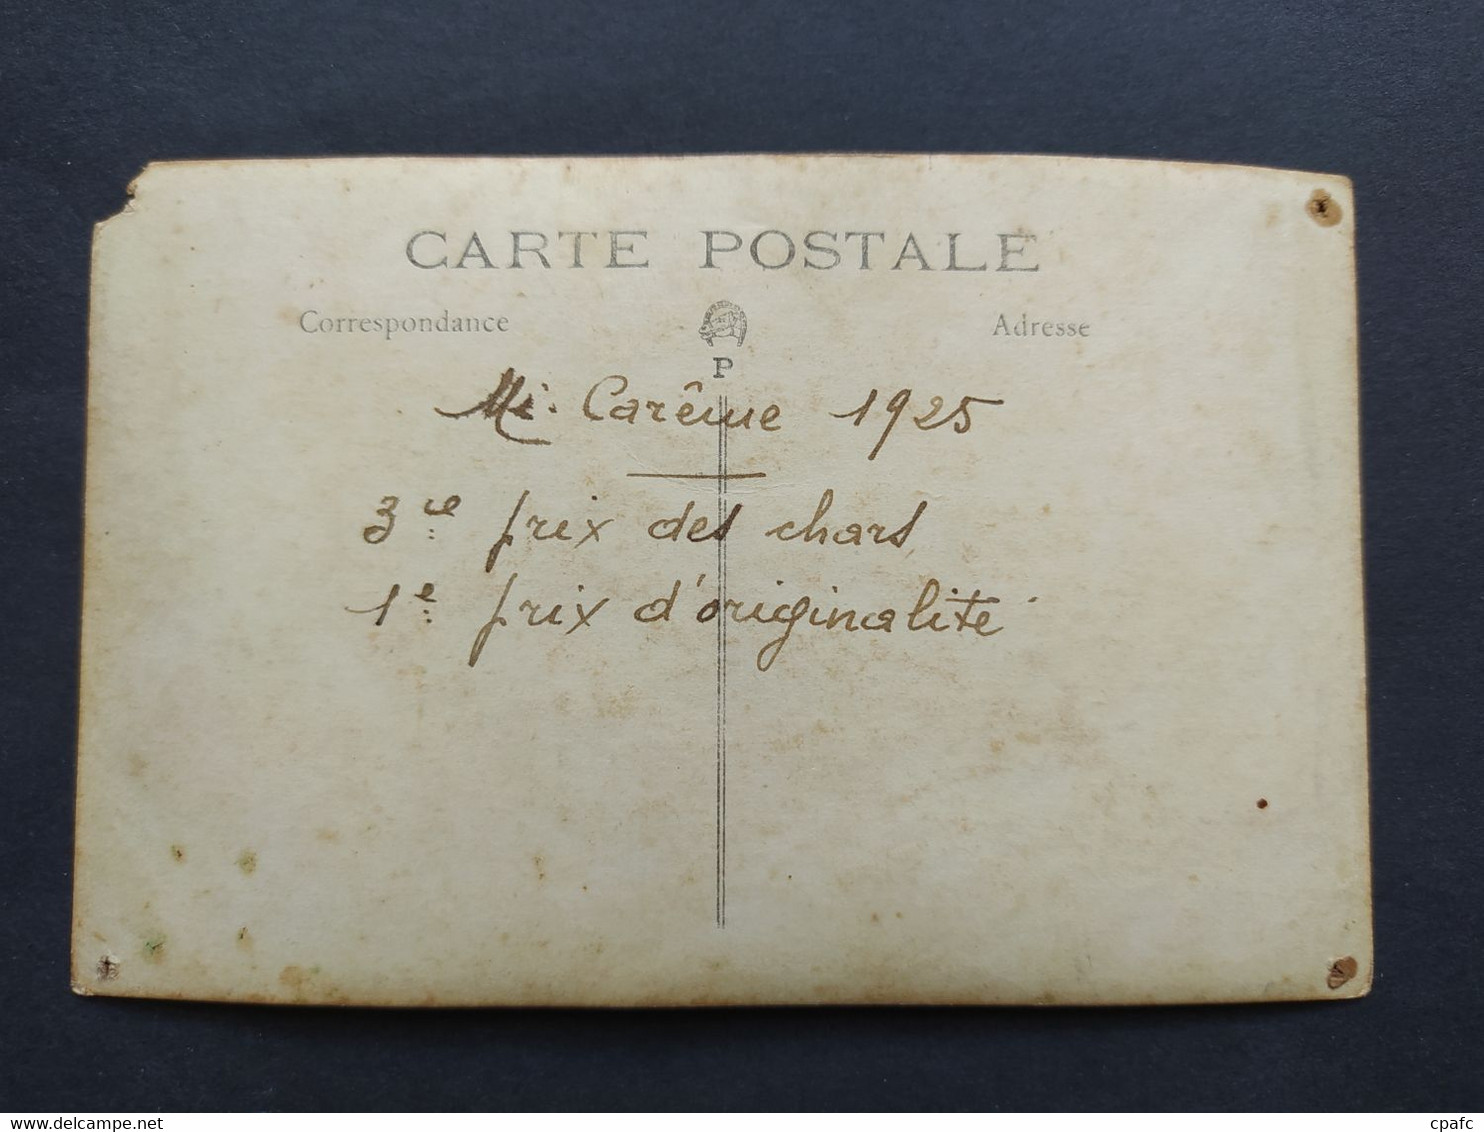 CARTE POSTALE
Correspondance Adresse
P
Mi-Carême 1925
3ie prix des chars
1e prix d'originalité
cpafc